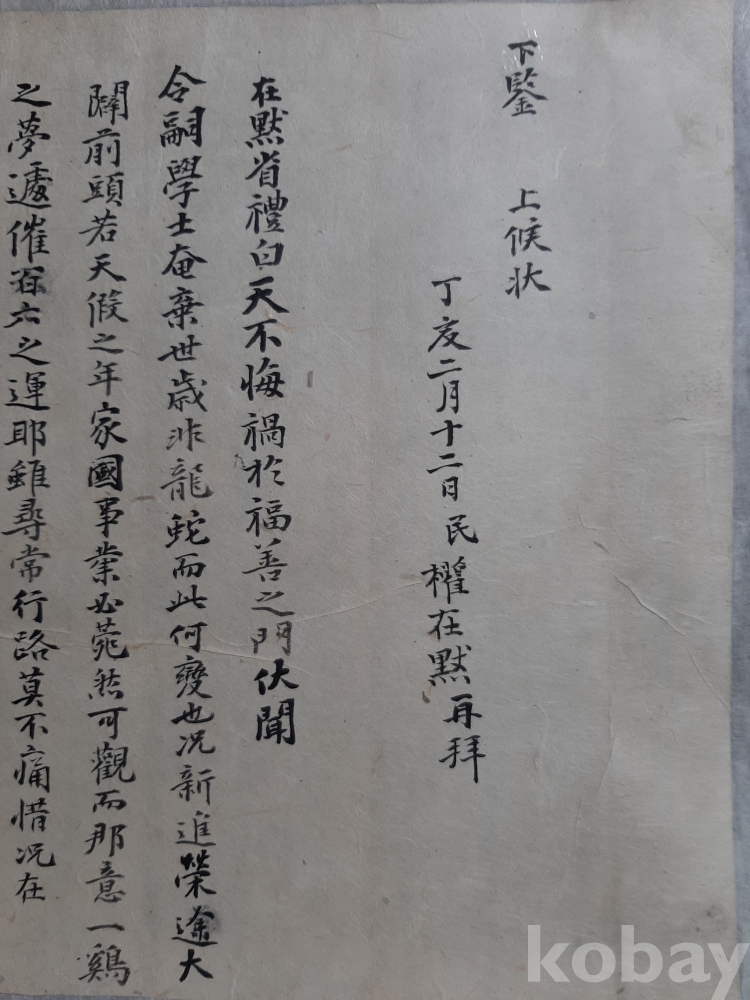 下鑒　上候狀
丁亥二月十二日 民 權在默 再拜
在默省禮白天不悔禍於福善之門伏聞
令嗣學士奄棄世歲非龍蛇而此何變也况新進榮途大
闢前頭若天假之年家國事業必菀然可觀而那意一鷄
之夢遽催百六之運耶雖尋常行路莫不痛惜况在
kobay